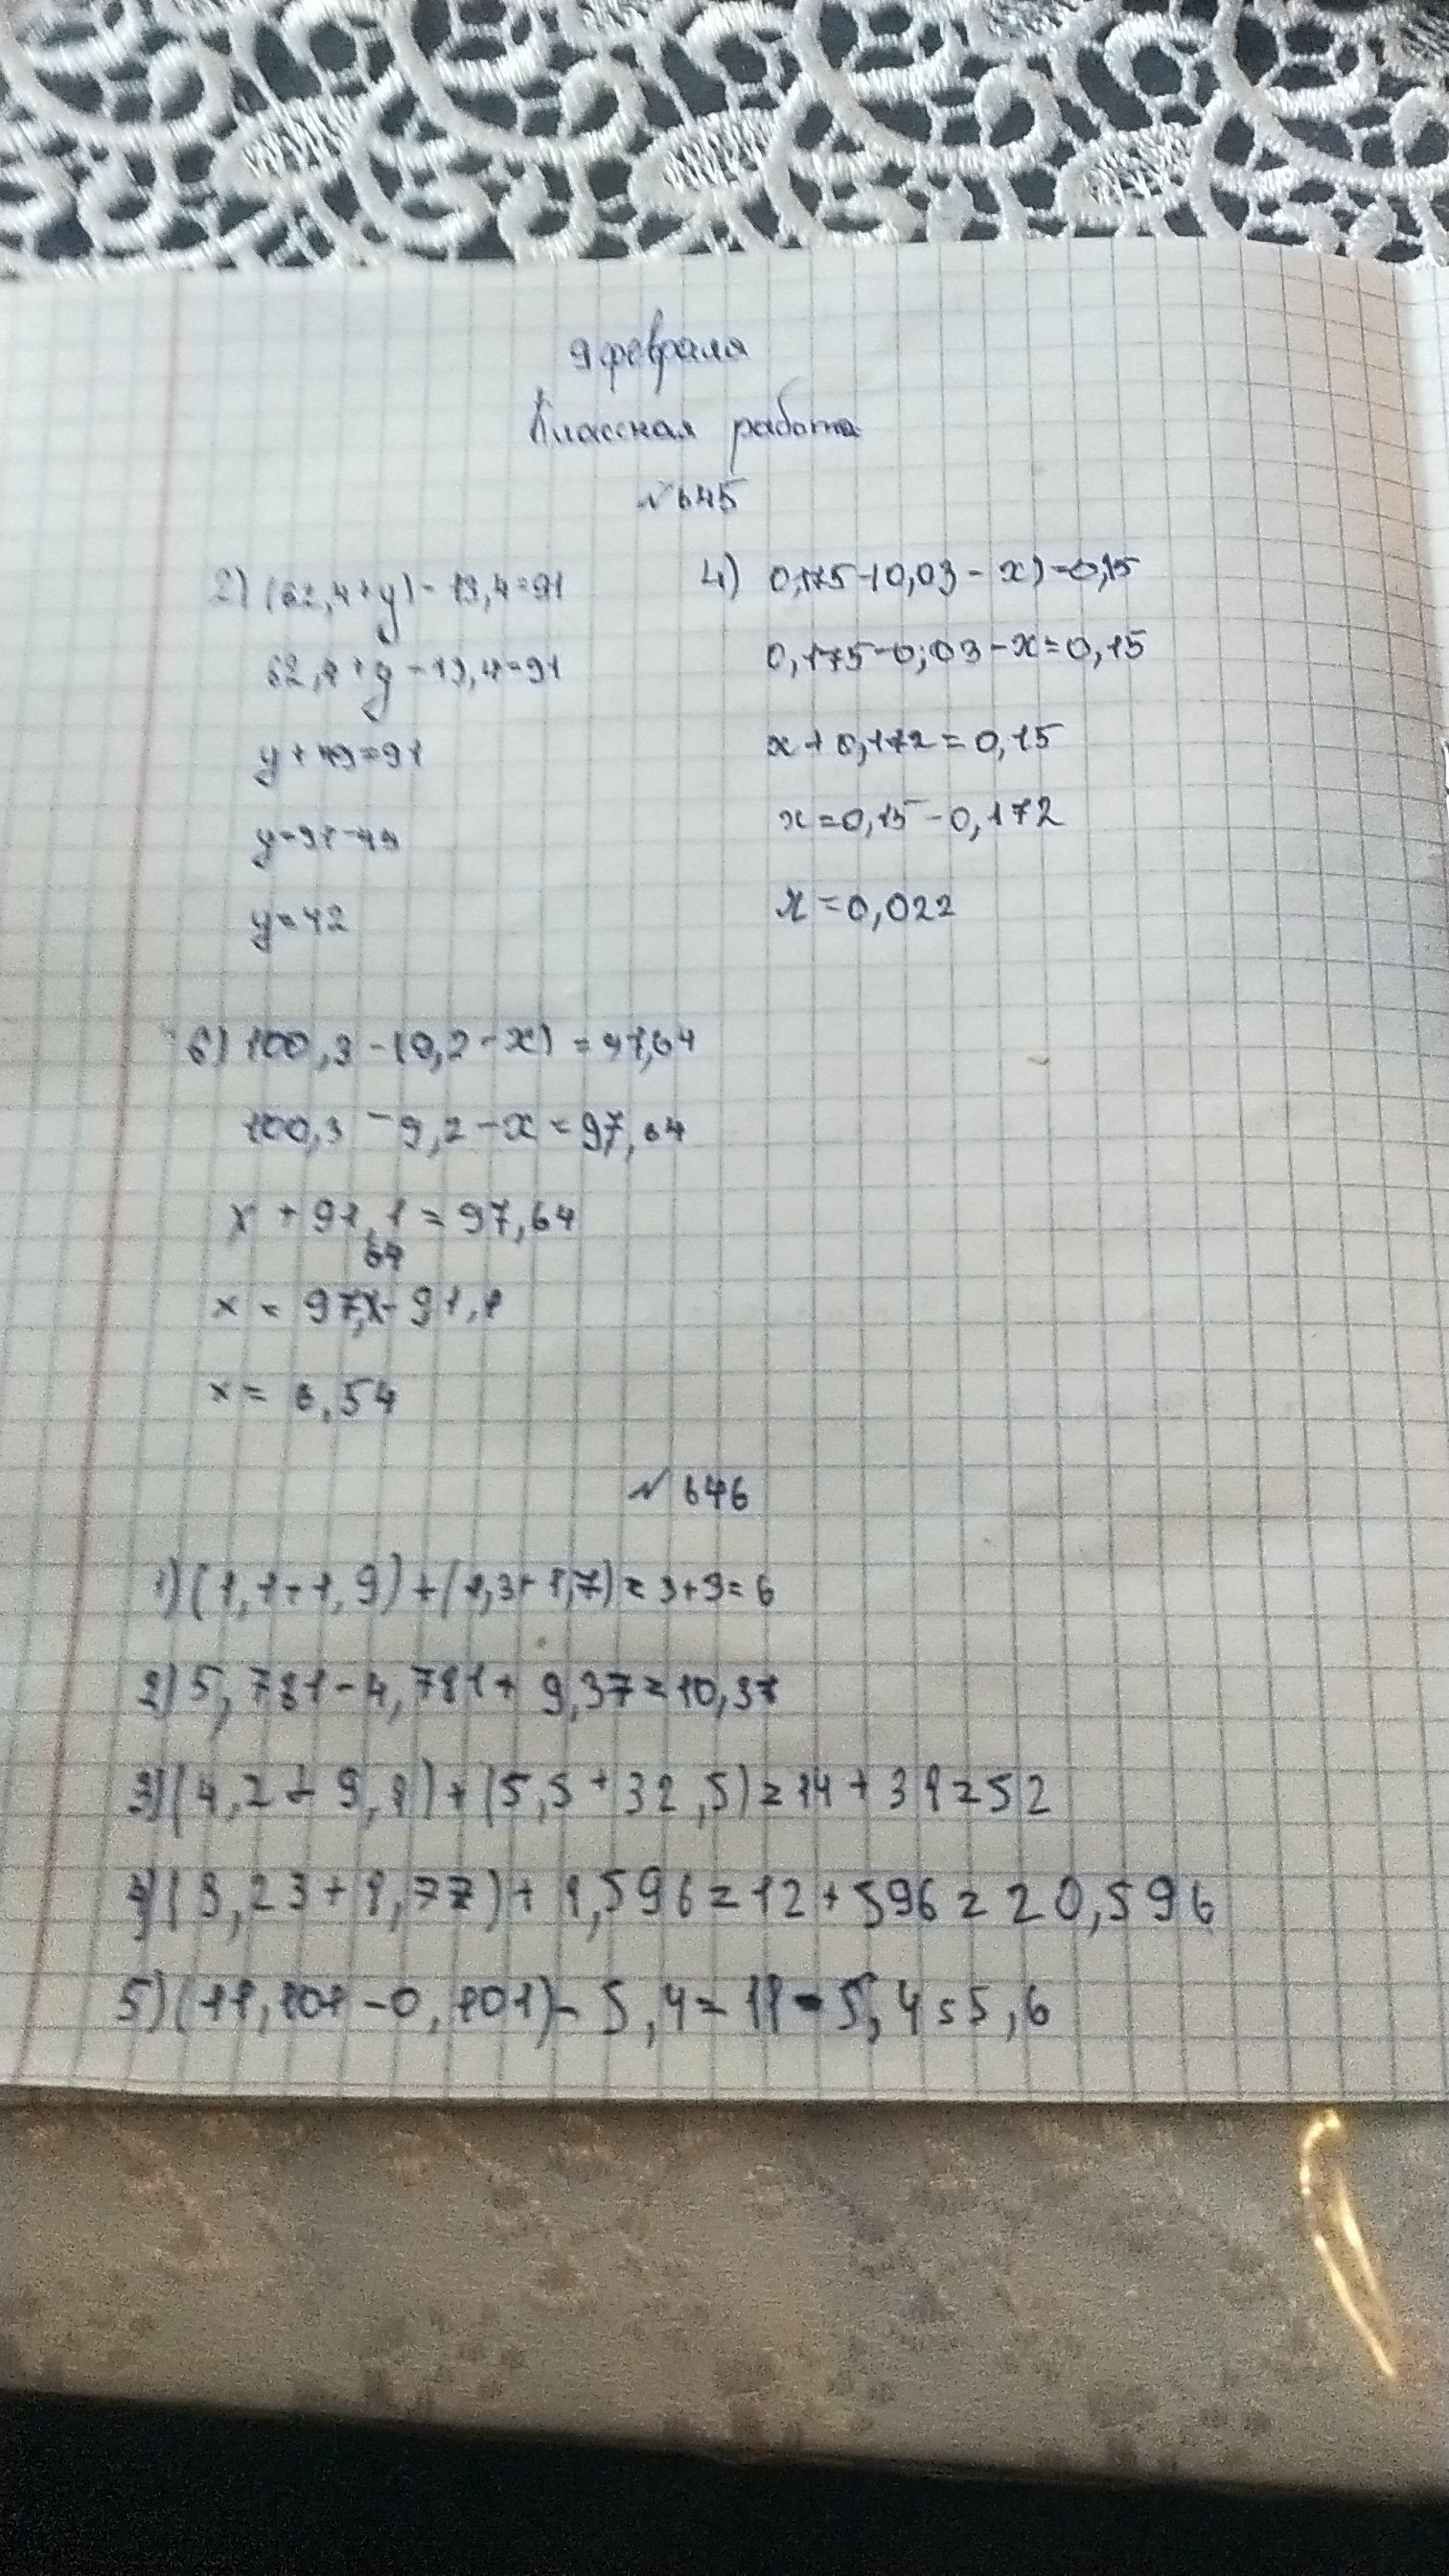 9 февраля
Классная работа
№ 645
2) (62,4+y) - 13,4=91
62,4+y-13,4=91
y+49=91
y=91-49
y=42
4) 0,175-(0,03-x)=0,15
0,175-0,03-x=0,15
x+0,172=0,15
x=0,15-0,172
x=0,022
6) 100,3-(9,2-x)=97,64
100,3-9,2-x=97,64
x+91,1=97,64
64
x = 97, - 91,1
x = 6,54
№ 646
1) (1,1+1,9)+(1,3+1,7)=3+3=6
2) 5,781-4,781+9,37=10,37
3) (4,2+9,8)+(5,5+32,5)=14+38=52
4) (3,23+8,77)+8,596=12+596=20,596
5) (11,101-0,101)-5,4=11-5,4=5,6